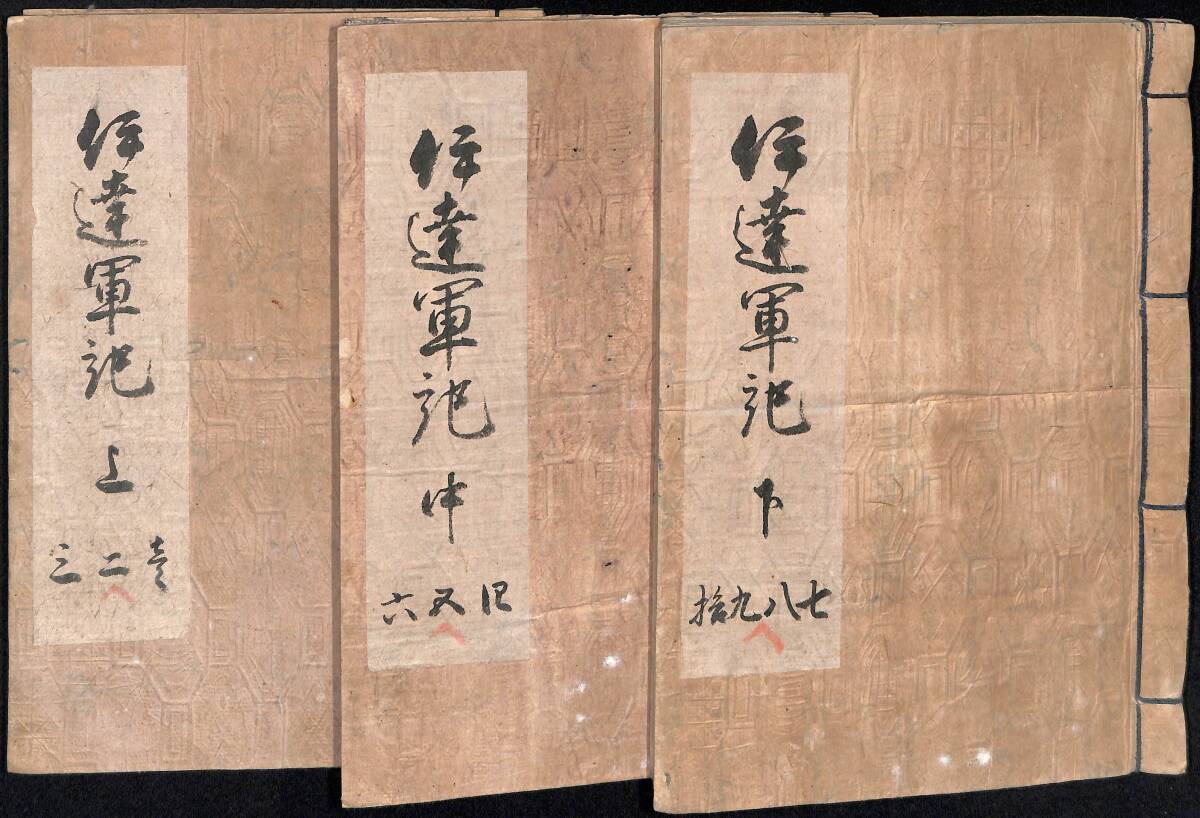 伊達軍記 上
壱 二 三
伊達軍記 中
四 五 六
伊達軍記 下
七 八 九 拾